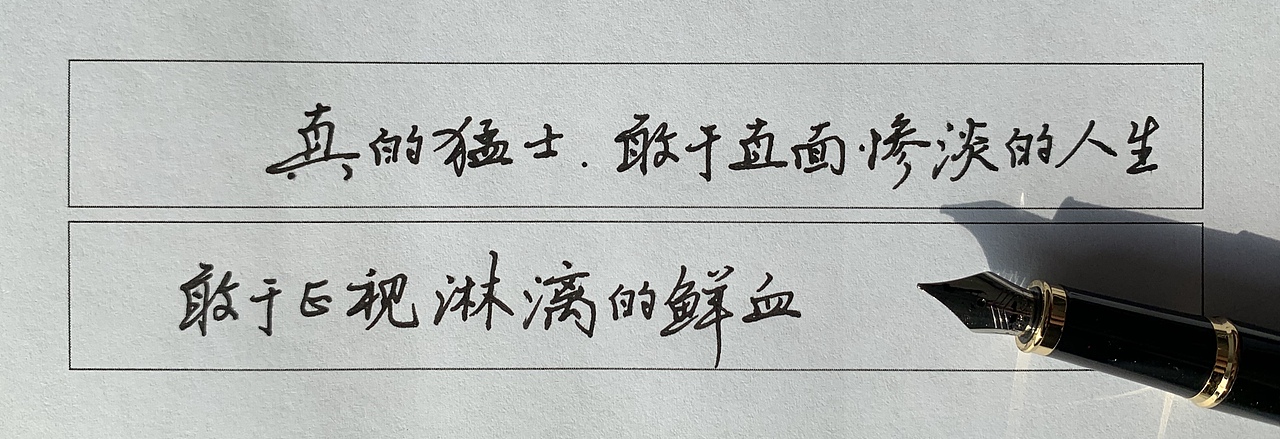 真的猛士.敢于直面惨淡的人生
敢于正视淋漓的鲜血